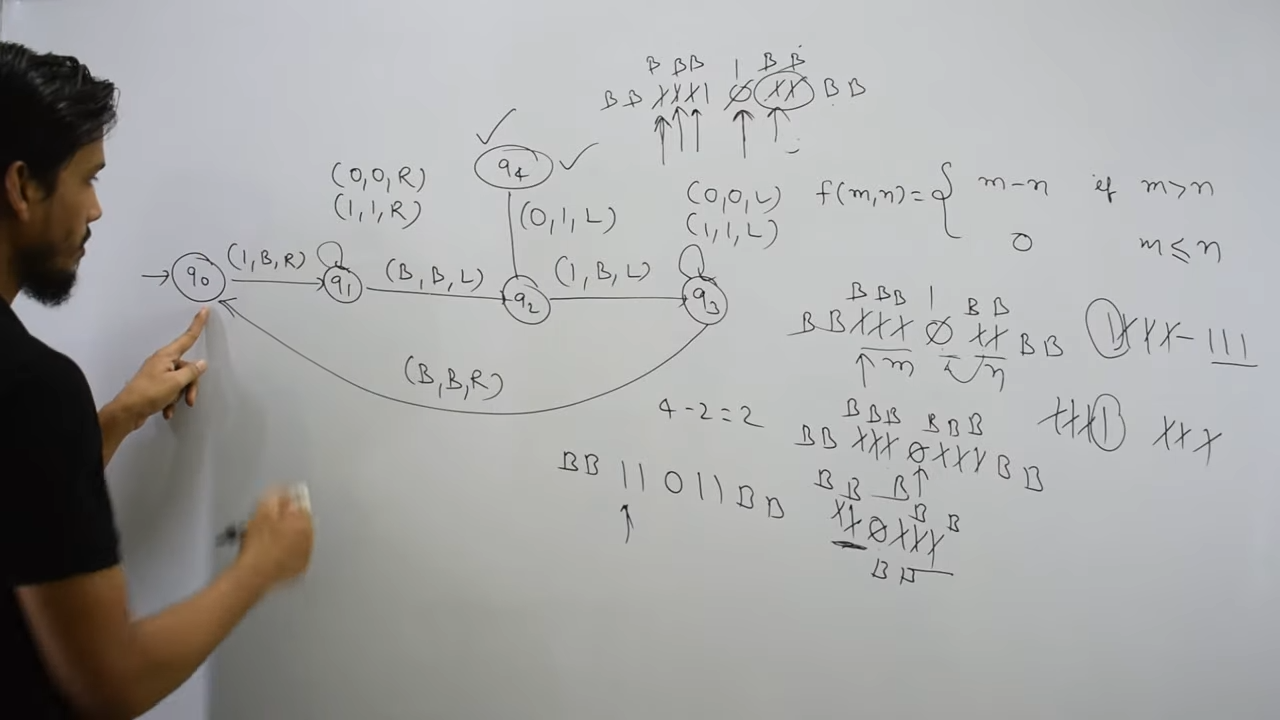 B BB 1 B B
B B XXX1 0 XX B B
q4
(0,0,R)
(1,1,R)
(0,1,L)
(0,0,L)
(1,1,L)
f(m,n) = { m-n if m>n
0 m≤n
q0
(1,B,R)
q1
(B,B,L)
q2
(1,B,L)
q3
(B,B,R)
B BB 1 B B
B B XXX 0 XX B B
m n
1XXX - 111
4-2=2
B BB B B B
B B XXX 0 XXX B B
XXX1 XXX
BB 11 0 11 B B
B B B
XX 0 XXX
B B
B B